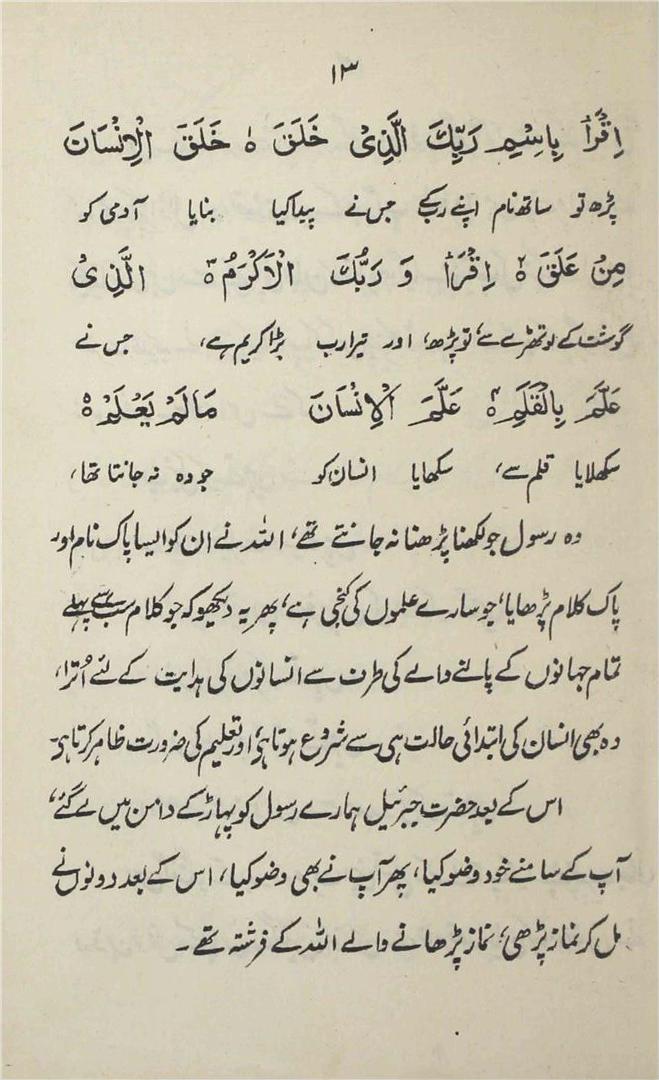 ۱۳
اِقْرَأْ بِاسْمِ رَبِّكَ الَّذِیْ خَلَقَ ہ خَلَقَ الْاِنْسَانَ
پڑھ تو ساتھ نام اپنے رب کے جس نے پیدا کیا بنایا آدمی کو
مِنْ عَلَقٍ ہ اِقْرَأْ وَ رَبُّكَ الْاَكْرَمُ ہ الَّذِیْ
گوشت کے لوتھڑے سے، تو پڑھ، اور تیرا رب بڑا کریم ہے، جس نے
عَلَّمَ بِالْقَلَمِ ہ عَلَّمَ الْاِنْسَانَ مَالَمْ یَعْلَمْ ہ
سکھلایا قلم سے، سکھایا انسان کو جو وہ نہ جانتا تھا،
وہ رسول جو لکھنا پڑھنا نہ جانتے تھے، اللہ نے ان کو ایسا پاک نام اور
پاک کلام پڑھایا، جو سارے علموں کی کنجی ہے، پھر یہ دیکھو کہ جو کلام سب سے پہلے
تمام جہانوں کے پالنے والے کی طرف سے انسانوں کی ہدایت کے لئے اُترا،
وہ بھی انسان کی ابتدائی حالت ہی سے شروع ہوتا ہے، اور تعلیم کی ضرورت ظاہر کرتا ہے۔
اس کے بعد حضرت جبرئیل ہمارے رسول کو پہاڑ کے دامن میں لے گئے،
آپ کے سامنے خود وضو کیا، پھر آپ نے بھی وضو کیا، اس کے بعد دونوں نے
مل کر نماز پڑھی، نماز پڑھانے والے اللہ کے فرشتہ تھے۔